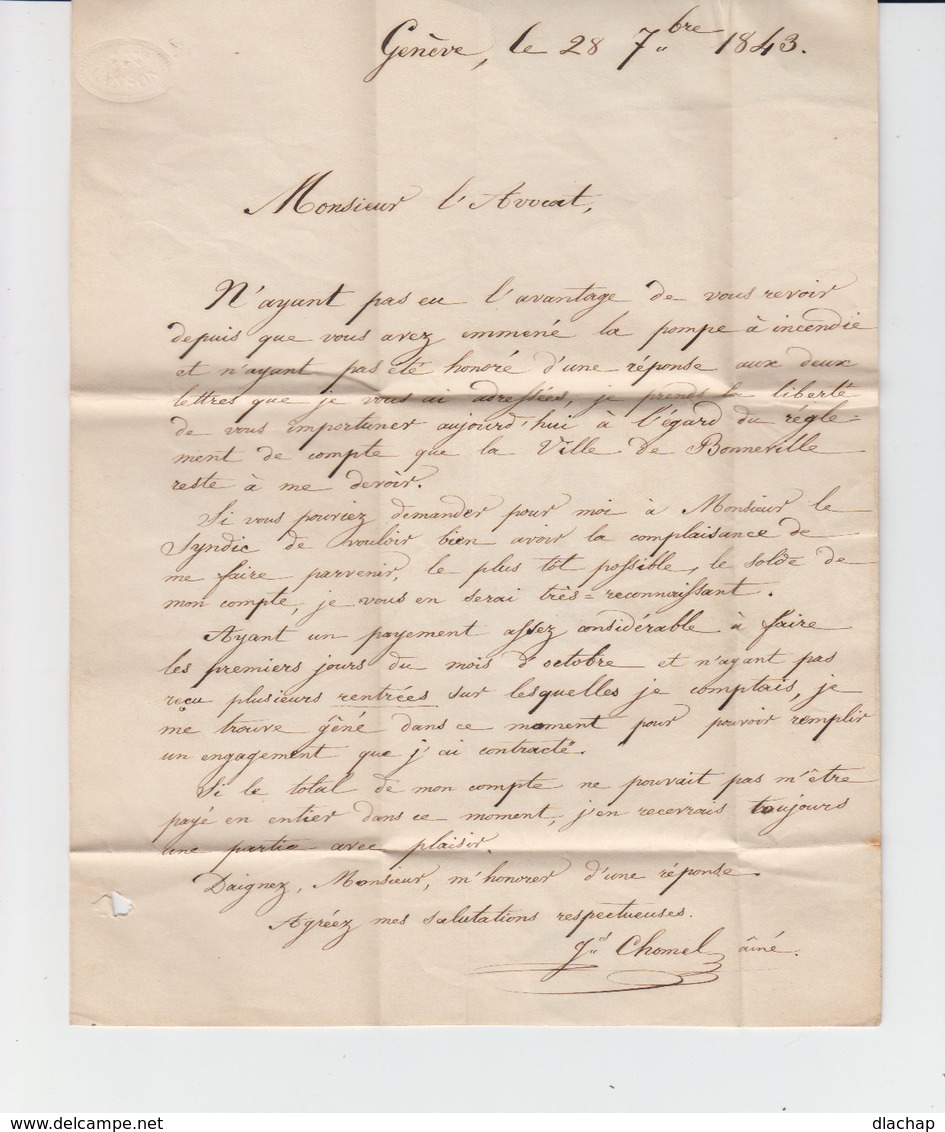 Genève, le 28 7bre 1843.
Monsieur l'Avocat,
N'ayant pas eu l'avantage de vous revoir
depuis que vous avez emmené la pompe à incendie
et n'ayant pas été honoré d'une réponse aux deux
lettres que je vous ai adressées, je prends la liberté
de vous importuner aujourd'hui à l'égard du régle=
ment de compte que la Ville de Bonneville
reste à me devoir.
Si vous pouviez demander pour moi à Monsieur le
Syndic de vouloir bien avoir la complaisance de
me faire parvenir, le plus tôt possible, le solde de
mon compte, je vous en serai très=reconnaissant.
Ayant un payement assez considérable à faire
les premiers jours du mois d'octobre et n'ayant pas
reçu plusieurs rentrées sur lesquelles je comptais, je
me trouve gêné dans ce moment pour pouvoir remplir
un engagement que j'ai contracté.
Si le total de mon compte ne pouvait pas m'être
payé en entier dans ce moment, j'en recevrais toujours
une partie avec plaisir.
Daignez, Monsieur, m'honorer d'une réponse.
Agréez mes salutations respectueuses.
Chomel aîné.
dlachap
delcampe.net